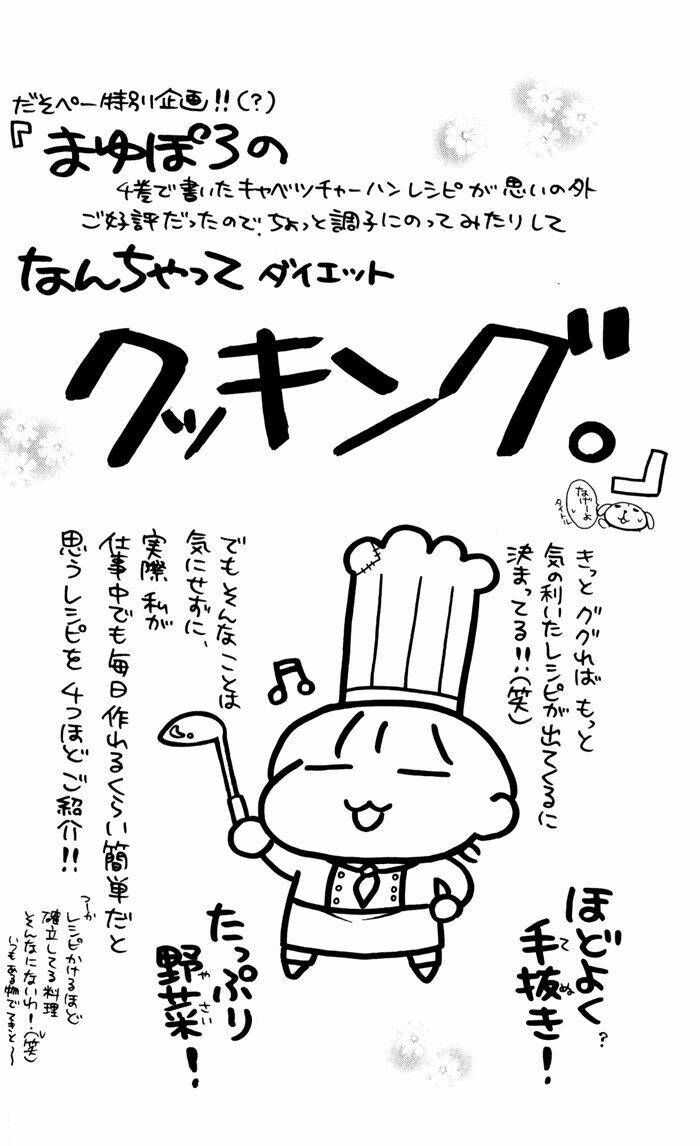 だそぺー特別企画!!(?)
『まゆぽろの
4巻で書いたキャベツチャーハンレシピが思いの外
ご好評だったので、ちょっと調子にのってみたりして
なんちゃってダイエット
クッキング。』
なげーよ
タイトル
きっとググればもっと
気の利いたレシピが出てくるに
決まってる!!(笑)
でもそんなことは
気にせずに、
実際私が
仕事中でも毎日作れるくらい簡単だと
思うレシピを4つほどご紹介!!
ほどよく?
手抜き!
てぬ
たっぷり
野菜!
やさい
つーか
レシピかけるほど
確立してる料理
そんなにないわ!(笑)
いつもある物でてきと〜